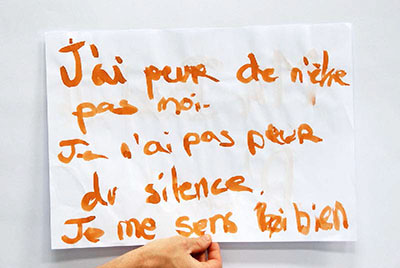 J'ai peur de n'être
pas moi.
Je n'ai pas peur
du silence.
Je me sens bien